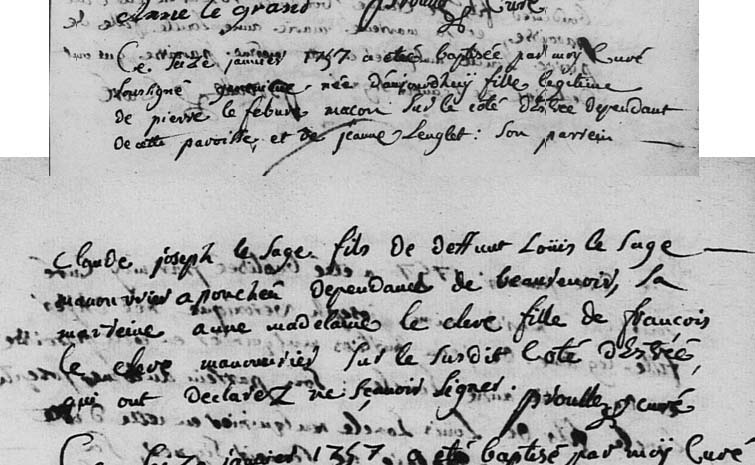 anne le grand proulle curé
Ce seize janvier 1757 a eté baptisée par moy Curé
soussigné née d'aujourdhuy fille legitime
de pierre le febure macon sur le coté d'Estrée dependant
de cette paroisse, et de jeanne Lenglet: son parrein
Claude joseph le sage fils de deffunt Loüis le sage
manouvrier a ponchau dependance de beaurevoir, sa
marreine anne madelaine le cleve fille de francois
le cleve manouvrier sur le susdit coté d'Estrée,
qui ont declarez ne sçavoir signer. proullez curé
Ce janvier 1757 a eté baptisé par moy Curé